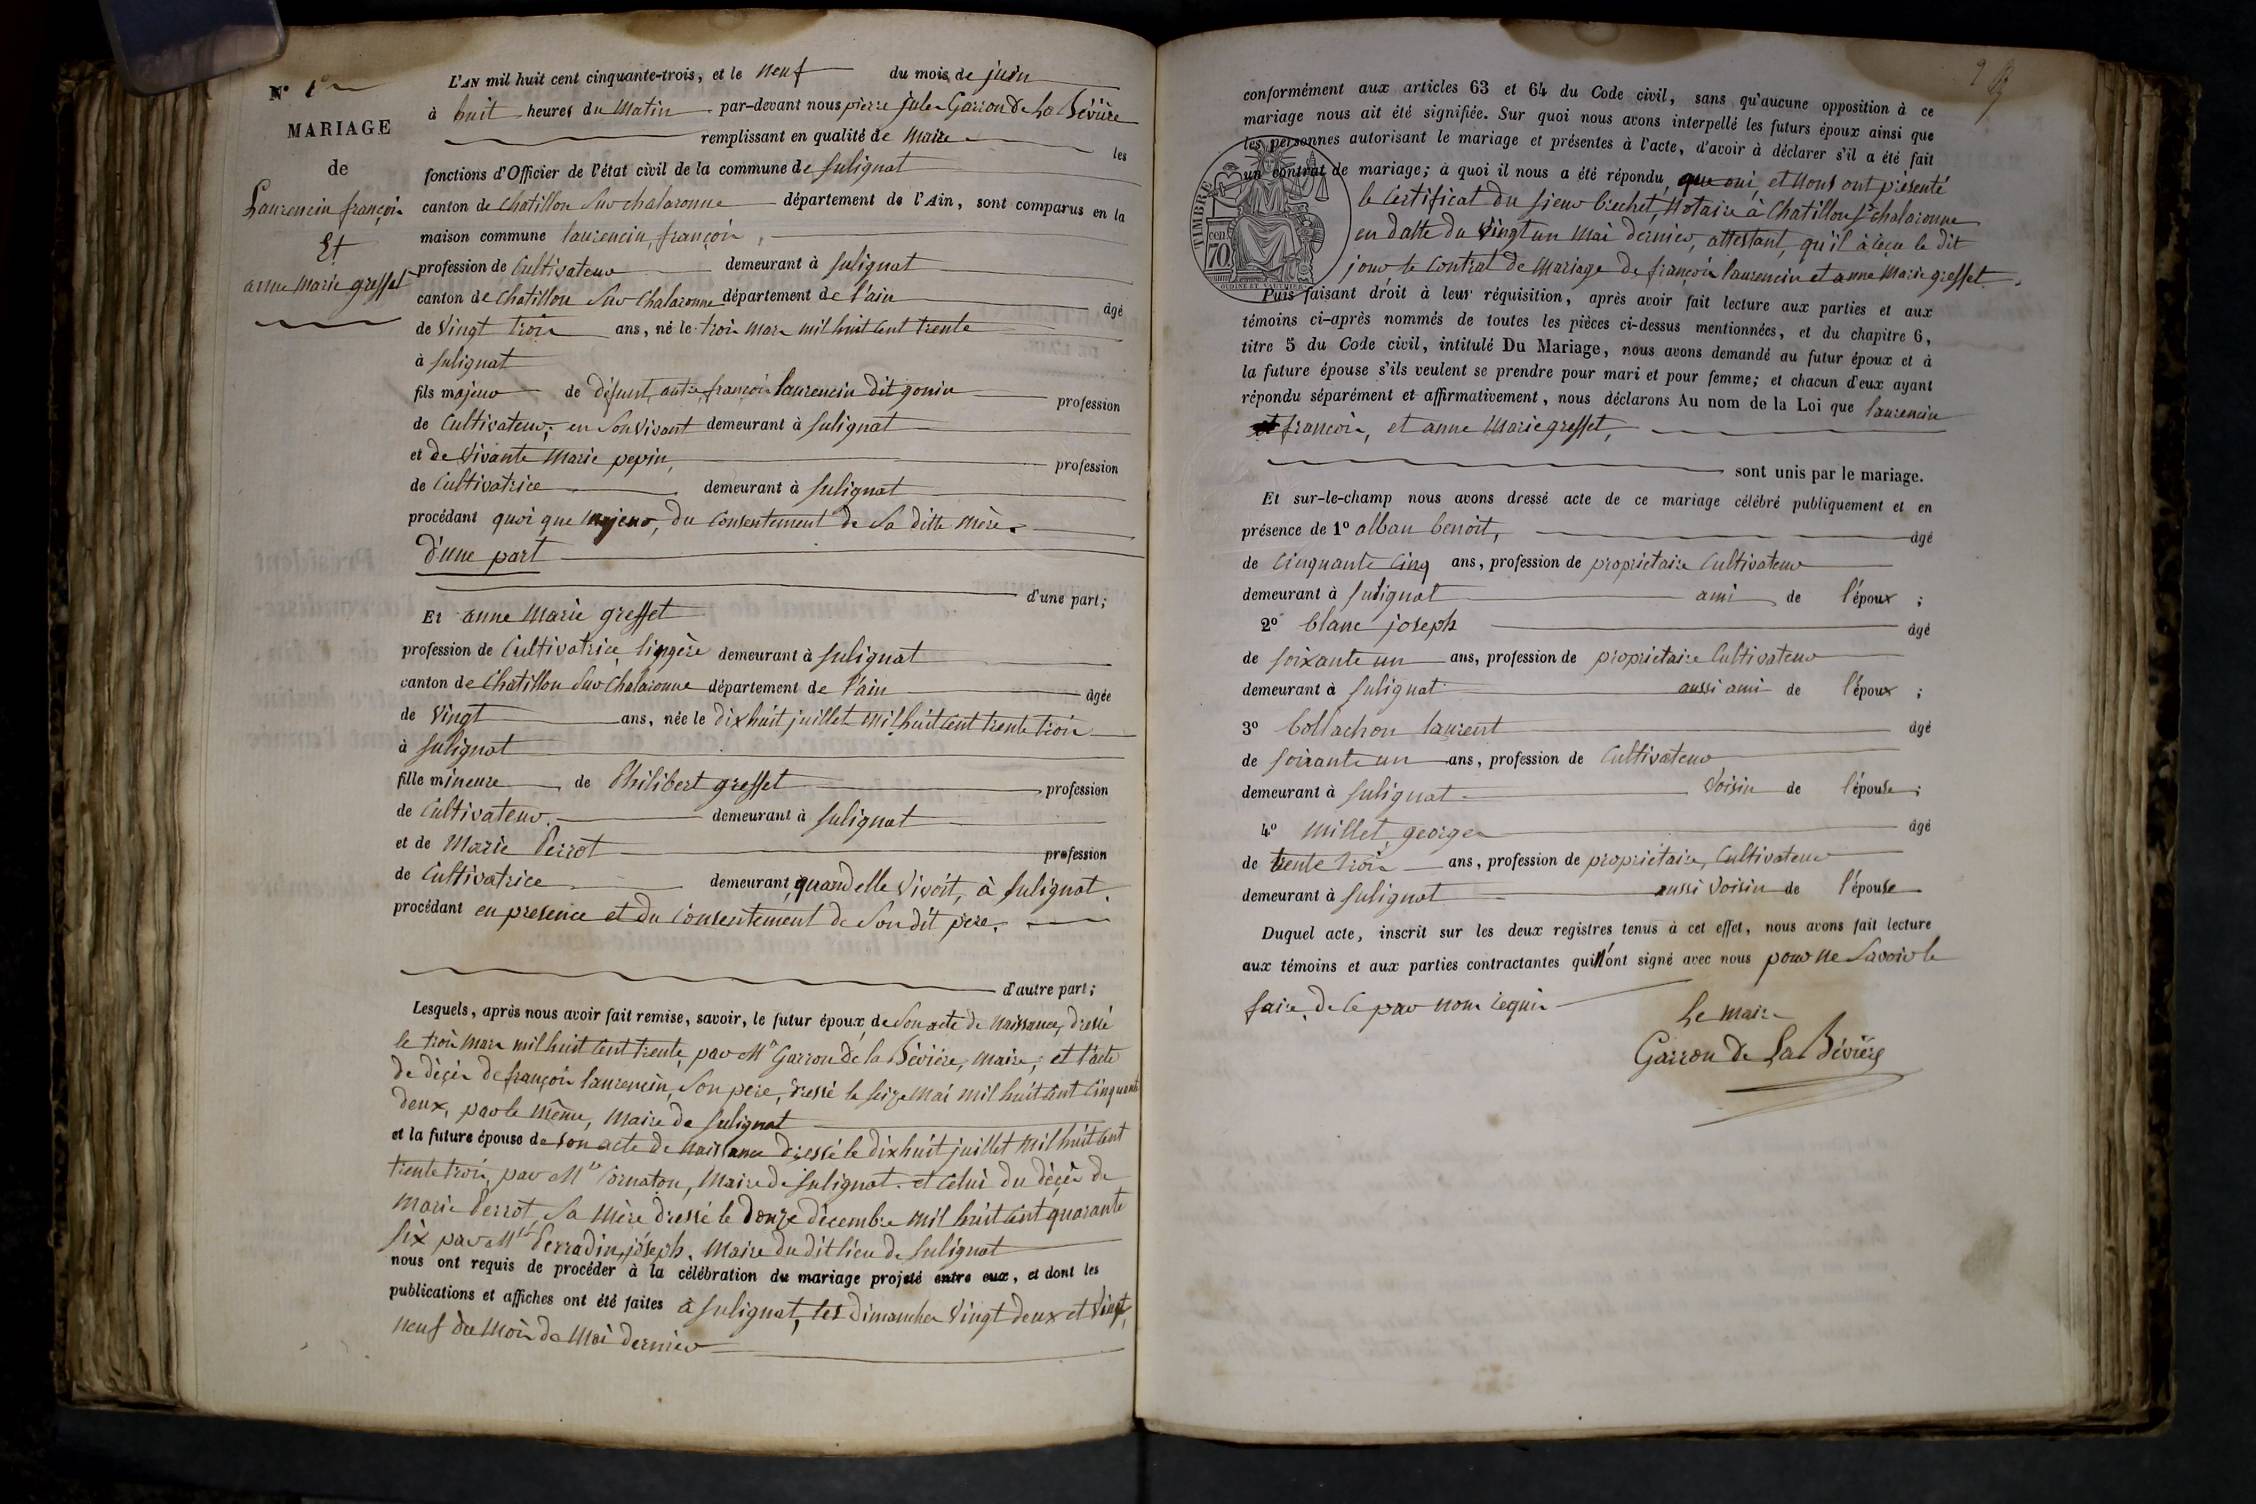 N° 1er
MARIAGE
de
Laurencin françois
Et
anne Marie greffet
L'AN mil huit cent cinquante-trois, et le neuf du mois de juin
à huit heures du Matin par-devant nous pierre jules Garron de La Bévière
remplissant en qualité de Maire les
fonctions d'Officier de l'état civil de la commune de Sulignat
canton de Chatillon Sur chalaronne département de l'Ain, sont comparus en la
maison commune laurencin, françois,
profession de Cultivateur demeurant à Sulignat
canton de Chatillon Sur Chalaronne département de l'ain âgé
de Vingt trois ans, né le trois mars mil huit Cent trente
à Sulignat
fils majeur de défunt, autre françois laurencin dit gonin profession
de Cultivateur, en Son Vivant demeurant à Sulignat
et de Vivante Marie pepin, profession
de Cultivatrice demeurant à Sulignat
procédant quoi que Majeur, du Consentement de Sa ditte Mère.
d'une part
d'une part;
Et anne Marie greffet
profession de Cultivatrice, lingère demeurant à Sulignat
canton de Chatillon Sur Chalaronne département de l'ain âgée
de Vingt ans, née le dix huit juillet Mil huit Cent trente trois
à Sulignat
fille mineure de Philibert greffet profession
de Cultivateur. demeurant à Sulignat
et de Marie Perrot profession
de Cultivatrice demeurant, quand elle Vivoit, à Sulignat.
procédant en presence et du Consentement de Son dit père.
d'autre part;
Lesquels, après nous avoir fait remise, savoir, le futur époux, de Son acte de Naissance, dressé
le trois Mars mil huit Cent trente, par Mr Garron de la Bévière, Maire; et l'acte
de décès de françois laurencin, Son pere, dressé le seize Mai mil huit Cent Cinquante
deux, par le Même, Maire de Sulignat
et la future épouse de son acte de Naissance dressé le dix huit juillet Mil huit Cent
trente trois, par Mr Cornaton, Maire de Sulignat. et Celui du décès de
Marie Perrot, Sa Mère dressé le douze décembre Mil huit Cent quarante
Six par Mr Perradin, joseph, Maire du dit lieu de Sulignat
nous ont requis de procéder à la célébration du mariage projeté entre eux, et dont les
publications et affiches ont été faites à Sulignat, les dimanches Vingt deux et Vingt,
neuf du Mois de Mai dernier
conformément aux articles 63 et 64 du Code civil, sans qu'aucune opposition à ce
mariage nous ait été signifiée. Sur quoi nous avons interpellé les futurs époux ainsi que
les personnes autorisant le mariage et présentes à l'acte, d'avoir à déclarer s'il a été fait
un contrat de mariage; à quoi il nous a été répondu, que oui, et Nous ont présenté
le Certificat du sieur Brechet, Notaire à Chatillon sr chalaronne
en datte du Vingt un Mai dernier, attestant, qu'il à reçu le dit
jour le Contrat de Mariage de françois laurencin et anne Marie greffet.
TIMBRE
cen.
70.
OUDINE ET VAUTHIER
Puis faisant droit à leur réquisition, après avoir fait lecture aux parties et aux
témoins ci-après nommés de toutes les pièces ci-dessus mentionnées, et du chapitre 6,
titre 5 du Code civil, intitulé Du Mariage, nous avons demandé au futur époux et à
la future épouse s'ils veulent se prendre pour mari et pour femme; et chacun d'eux ayant
répondu séparément et affirmativement, nous déclarons Au nom de la Loi que laurencin
françois, et anne Marie greffet,
sont unis par le mariage.
Et sur-le-champ nous avons dressé acte de ce mariage célébré publiquement et en
présence de 1° alban benoit, âgé
de Cinquante Cinq ans, profession de propriétaire Cultivateur
demeurant à Sulignat ami de l'époux;
2° blanc joseph âgé
de soixante un ans, profession de propriétaire Cultivateur
demeurant à Sulignat aussi ami de l'époux;
3° bollachon laurent âgé
de soixante un ans, profession de Cultivateur
demeurant à Sulignat Voisin de l'épouse;
4° Millet, georges âgé
de trente trois ans, profession de propriétaire, Cultivateur
demeurant à Sulignat aussi Voisin de l'épouse
Duquel acte, inscrit sur les deux registres tenus à cet effet, nous avons fait lecture
aux témoins et aux parties contractantes qui n'ont signé avec nous pour ne Savoir le
faire, de ce par nous requis
Le Maire
Garron de La Bévière